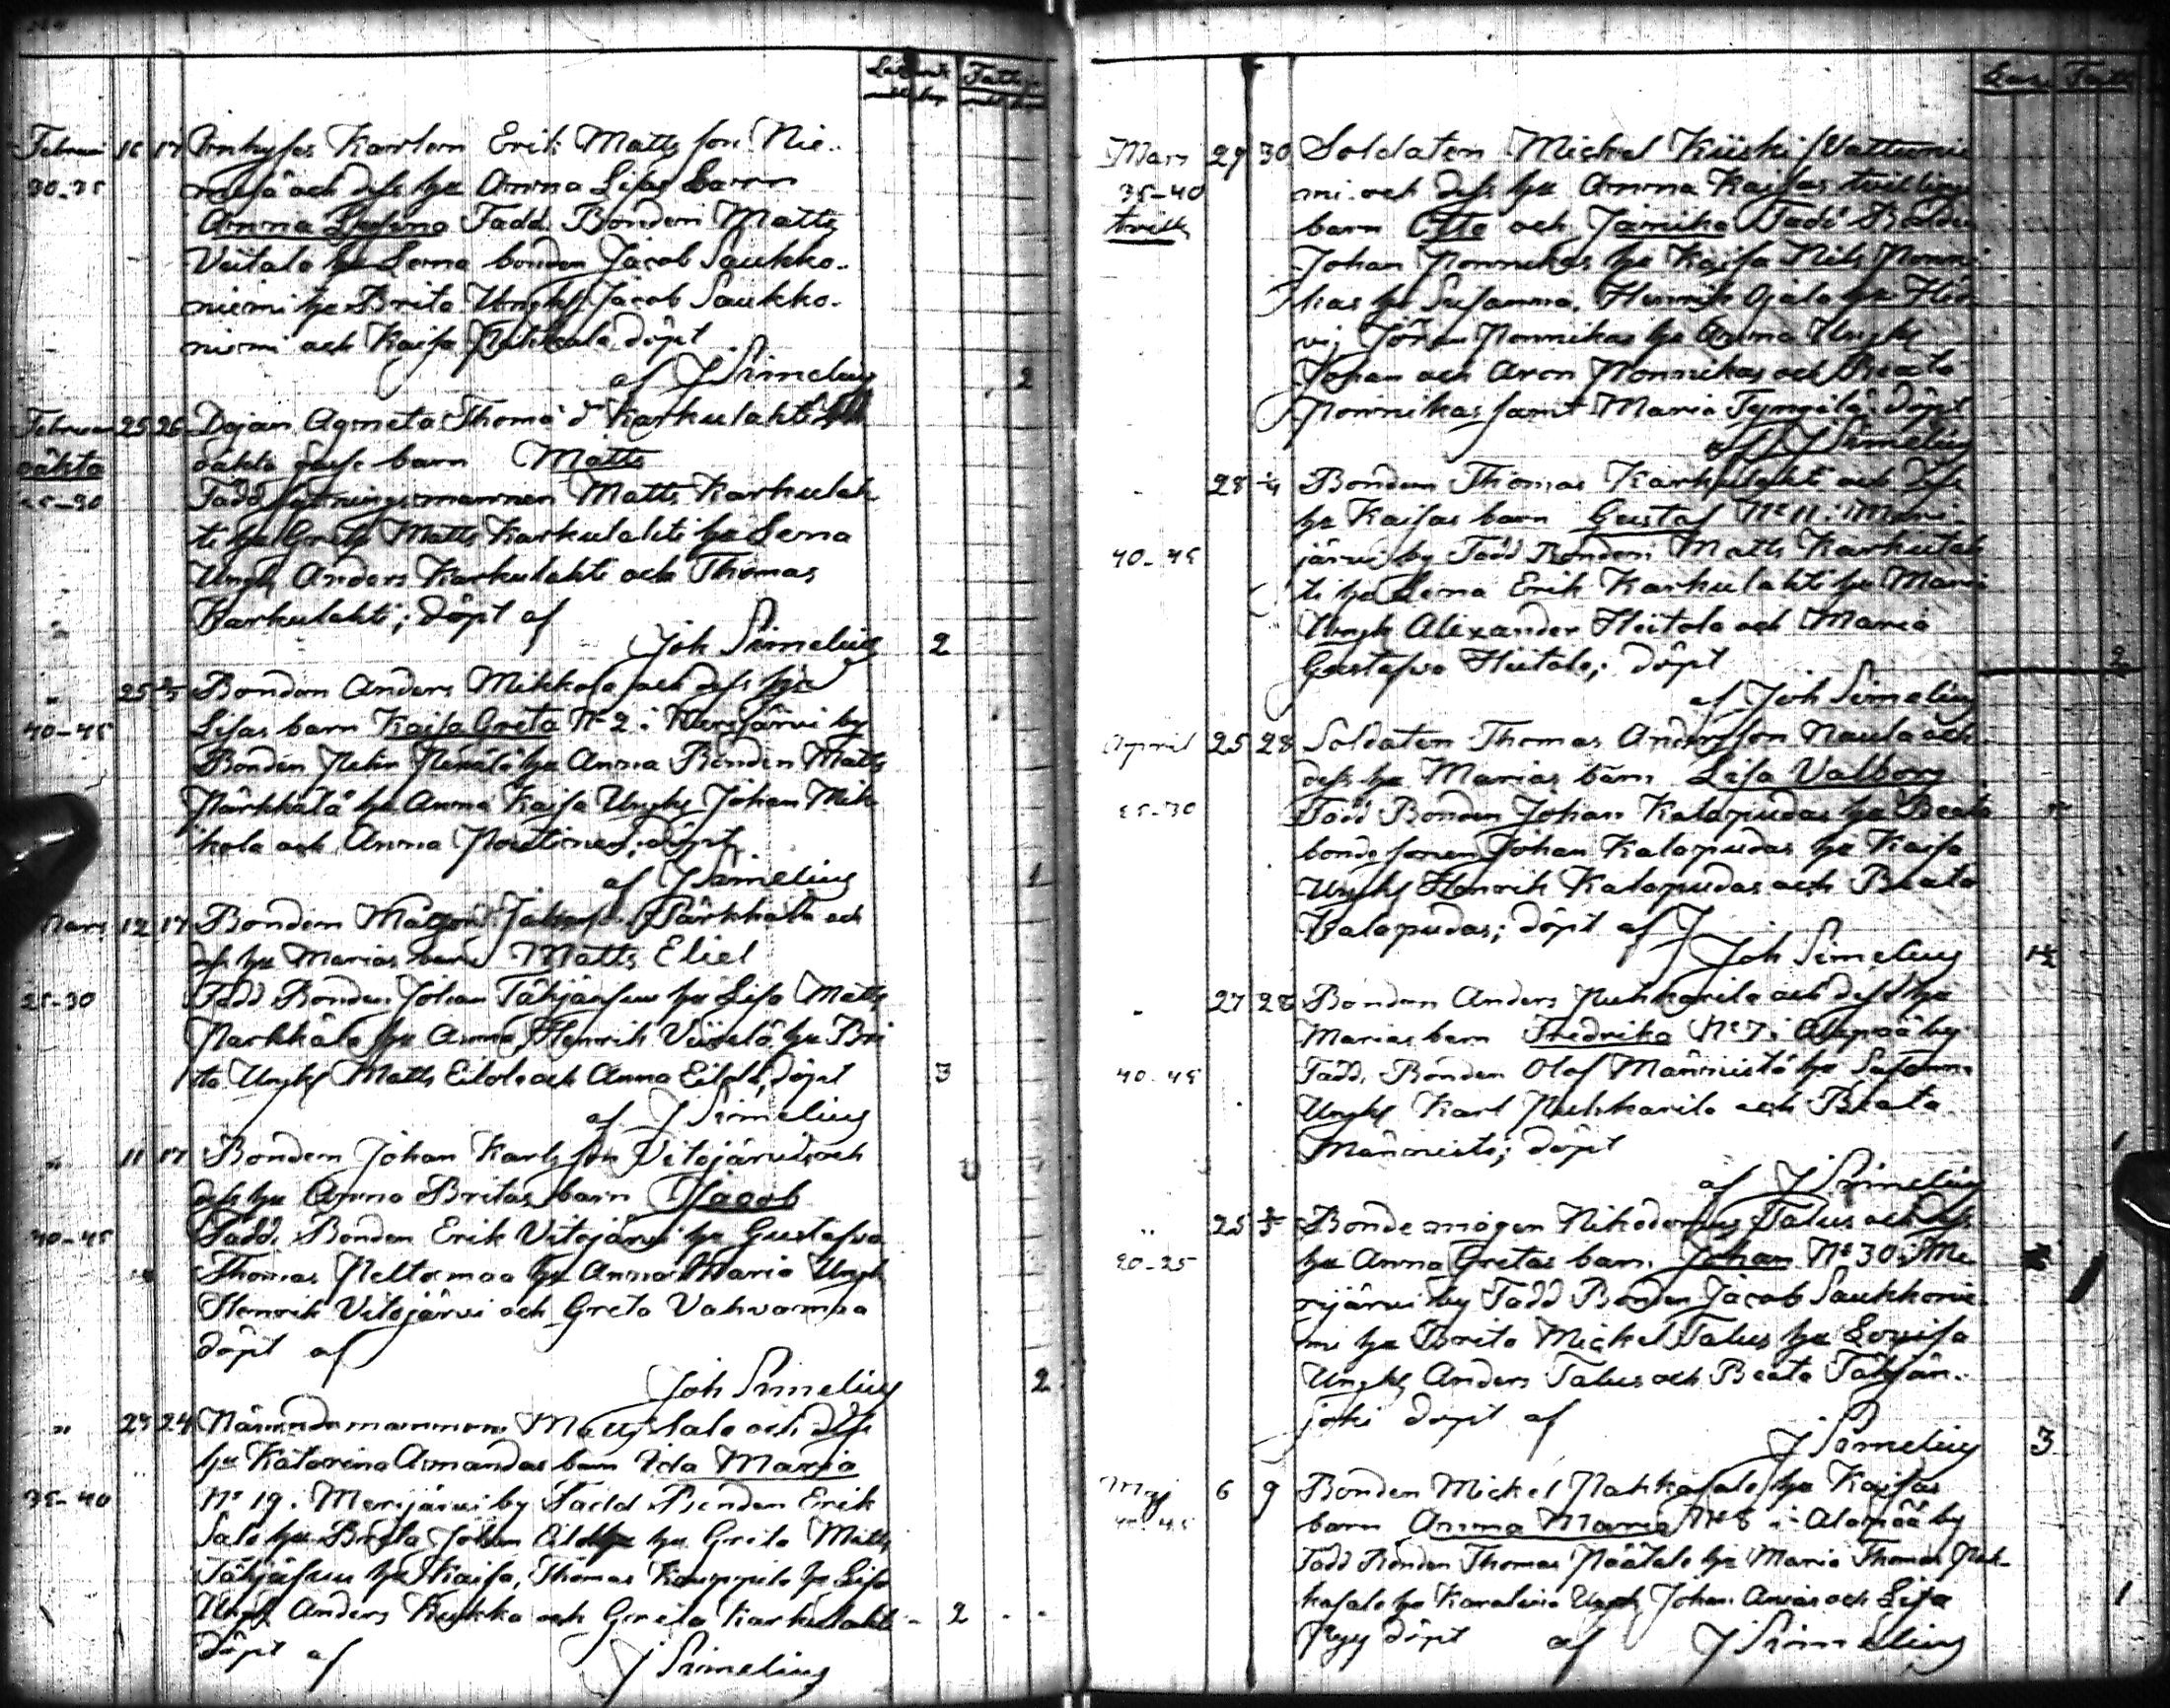 Februari 16 17 Inhyses Karlen Erik Matts son Nie-
30-35 mejä och dess hu Anna Lisas barn
Anna Tadd. Bonden Matts
Viitala hu Lena bonden Jacob Saukko-
niemi hu Brita Ungk Jacob Saukko-
niemi och Kaisa döpt
af J Simelius 2
Februari 25 26 Pojan Agneta Thomæ dr Karkulahti
oäkta oäkta barn Matts
25-30 Tadd Matts Karkulah
ti hu Greta Matts Karkulahti hu Lena
Ungk Anders Karkulahti och Thomas
Karkulahti; döpt af
Joh Simelius 2
" 25 Bonden Anders Mikkola och dess hu
40-45 Lisas barn Kaisa Greta No 2 i Merijärvi by
Bonden Petter hu Anna Bonden Matts
Pärkkälä hu Anna Kaisa Ungk Johan Mik
kola och Anna döpt
af J Simelius 1
Mars 12 17 Bonden Pärkkälä och
dess hu Marias barn Matts Eliel
25-30 Tadd Bonden Johan Tähjänsuu hu Lisa Matts
Parkkälä hu Anna, Henrik hu Bri
ta Ungk Matts Eilola och Anna Eilola, döpt 3
af J Simelius
" 11 17 Bonden Johan Karlsson Vitajärvi och
dess hu Anna Britas barn Jacob
40-45 Tadd. Bonden Erik Vitajärvi hu Gustafva
Thomas Peltomaa hu Anna Maria Ungk
Henrik Vitajärvi och Greta Vahvamaa
döpt af
Joh Simelius 2
" 23 24 Nämndemannen Salo och dess
hu Katarina Amandas barn Ida Maria
35-40 No 19. Merijärvi by Tadd Bonden Erik
Salo hu Brita Johan hu Greta Matts
Tähjäsuu hu Kaisa, Thomas Kauppila hu Lisa
Ungk Anders Kukko och Greta Karkulahti - 2
döpt af J Simelius
Mars 29 30 Soldaten Mickel Kiiski Vattunie
35-40 mi och dess hu Anna Kaisas tvilling
tvill barn Otto och Jannika Tadd Bonden
Johan Ponnikas hu Kaisa Nils Ponni
kas hu Susanna, Henrik Ojala hu Hed
vi, Jöran Ponnikas hu Anna Ungk
Johan och Aron Ponnikas och Beata
Ponnikas samt Maria Tyngilä döpt
af J Simelius
28 Bonden Thomas Karkulahti och dess
hu Kaisas barn Gustaf No 11 i Meri-
40-45 järvi by Tadd Bonden Matts Karkulah
ti hu Lena Erik Karkulahti hu Maria
Ungk Alexander Hiitola och Maria
Gustafva Hiitola; döpt 2
af Joh Simelius
April 25 28 Soldaten Thomas Andersson Naula och
dess hu Marias barn Lisa Valborg
25-30 Tadd Bonden Johan Kalapudas hu Beata
bondesonen Johan Kalapudas hu Kaisa
Ungk Henrik Kalapudas och Beata
Kalapudas; döpt af
Joh Simelius
" 27 28 Bonden Anders Puhkarila och dess hu
Marias barn Fredrika No 7 i Alapää by
40-45 Tadd. Bonden Olof Männistö hu Susanna
Ungk Karl Puhkarila och Beata
Männistö; döpt 1
af J Simelius
" 25 Bondemågen Nikodemus Talus och dess
20-25 hu Anna Gretas barn Johan No 30 i Me
rijärvi by Tadd Bonden Jacob Saukkonie-
mi hu Brita Mickel Talus hu Lovisa
Ungk Anders Talus och Beata Tähjän-
joki döpt af
J Simelius 3
Maj 6 9 Bonden Mickel Pahkasalo hu Kaisas
40-45 barn Anna Maria No 8 i Alapää by
Tadd Bonden Thomas Päätalo hu Maria Thomas Pah-
kasalo hu Karolina Ungk Johan och Lisa 1
Pyy döpt af J Simelius